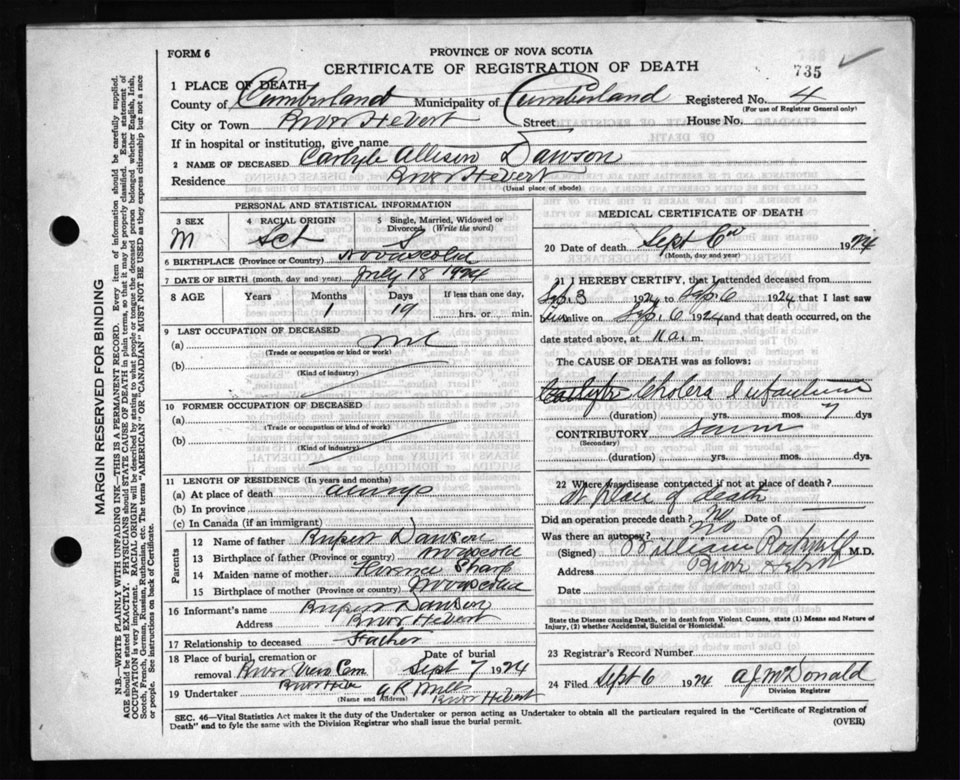 FORM 6
PROVINCE OF NOVA SCOTIA
CERTIFICATE OF REGISTRATION OF DEATH
735
1 PLACE OF DEATH
County of Cumberland Municipality of Cumberland Registered No. 4
(For use of Registrar General only)
City or Town River Hebert Street House No.
If in hospital or institution, give name
2 NAME OF DECEASED Carlyle Allison Dawson
Residence River Hebert
(Usual place of abode)
PERSONAL AND STATISTICAL INFORMATION
3 SEX M
4 RACIAL ORIGIN Sct
5 Single, Married, Widowed or Divorced (Write the word) S
6 BIRTHPLACE (Province or Country) Novascotia
7 DATE OF BIRTH (month, day and year) July 18 1924
8 AGE Years Months Days If less than one day,
1 19 hrs. or min.
9 LAST OCCUPATION OF DECEASED
(a)
(Trade or occupation or kind or work)
(b)
(Kind of industry)
10 FORMER OCCUPATION OF DECEASED
(a)
(Trade or occupation or kind of work)
(b)
(Kind of industry)
11 LENGTH OF RESIDENCE (In years and months)
(a) At place of death always
(b) In province
(c) In Canada (if an immigrant)
Parents
12 Name of father Rupert Dawson
13 Birthplace of father (Province or country) Novascotia
14 Maiden name of mother Florence Sharp
15 Birthplace of mother (Province or country) Novascotia
16 Informant's name Rupert Dawson
Address River Hebert
17 Relationship to deceased Father
18 Place of burial, cremation or removal River View Cem Date of burial Sept 7 1924
19 Undertaker River Hebert
(Name and Address)
MEDICAL CERTIFICATE OF DEATH
20 Date of death Sept 6th 1924
(Month, day and year)
21 I HEREBY CERTIFY, that I attended deceased from
Sep. 3 1924 to Sep. 6 1924 that I last saw
him alive on Sep. 6 1924 and that death occurred, on the
date stated above, at 11 a. m.
The CAUSE OF DEATH was as follows:
Carlyle Cholera Infantum
(duration) yrs. mos. 7 dys
CONTRIBUTORY
(Secondary)
(duration) yrs. mos. dys.
22 Where was disease contracted if not at place of death?
At place of death
Did an operation precede death? No Date of
Was there an autopsy? No
(Signed) William Rockwell M.D.
Address River Hebert
Date
State the Disease causing Death, or in death from Violent Causes, state (1) Means and Nature of Injury, (2) whether Accidental, Suicidal or Homicidal.
23 Registrar's Record Number
24 Filed Sept 6 1924 A J McDonald
Division Registrar
SEC. 46—Vital Statistics Act makes it the duty of the Undertaker or person acting as Undertaker to obtain all the particulars required in the "Certificate of Registration of
Death" and to fyle the same with the Division Registrar who shall issue the burial permit.
(OVER)
MARGIN RESERVED FOR BINDING
N.B.—WRITE PLAINLY WITH UNFADING INK—THIS IS A PERMANENT RECORD. Every item of information should be carefully supplied.
AGE should be stated EXACTLY. PHYSICIANS should STATE CAUSE OF DEATH in plain terms, so that it may be properly classified. Exact statement of
OCCUPATION is very important. RACIAL ORIGIN will be described by stating to what people or tongue the deceased person belonged whether English, Irish,
Scotch, French, German, Russian, Ruthenian, etc. The terms "AMERICAN" OR "CANADIAN" MUST NOT BE USED as they express citizenship but not a race
or people. See instructions on back of Certificate.